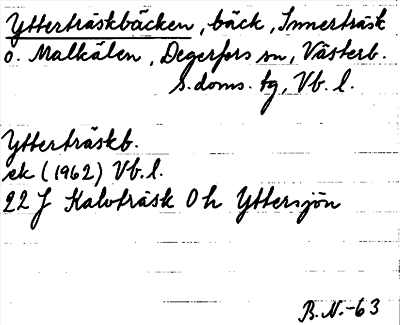 Ytterträskbäcken, bäck, Innerträsk
o. Malkälen, Degerfors sn, Västerb.
s. doms. tg, Vb. l.
Ytterträskb.
ek (1962) Vb. l.
22 J Kalvträsk 0 h Yttersjön
B.N.-63